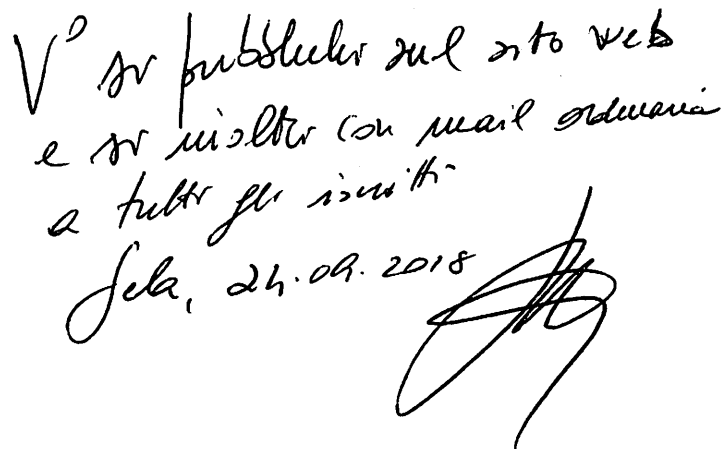 V° si pubblichi sul sito web
e si inoltri con mail ordinaria
a tutti gli iscritti
Gela, 24.09.2018